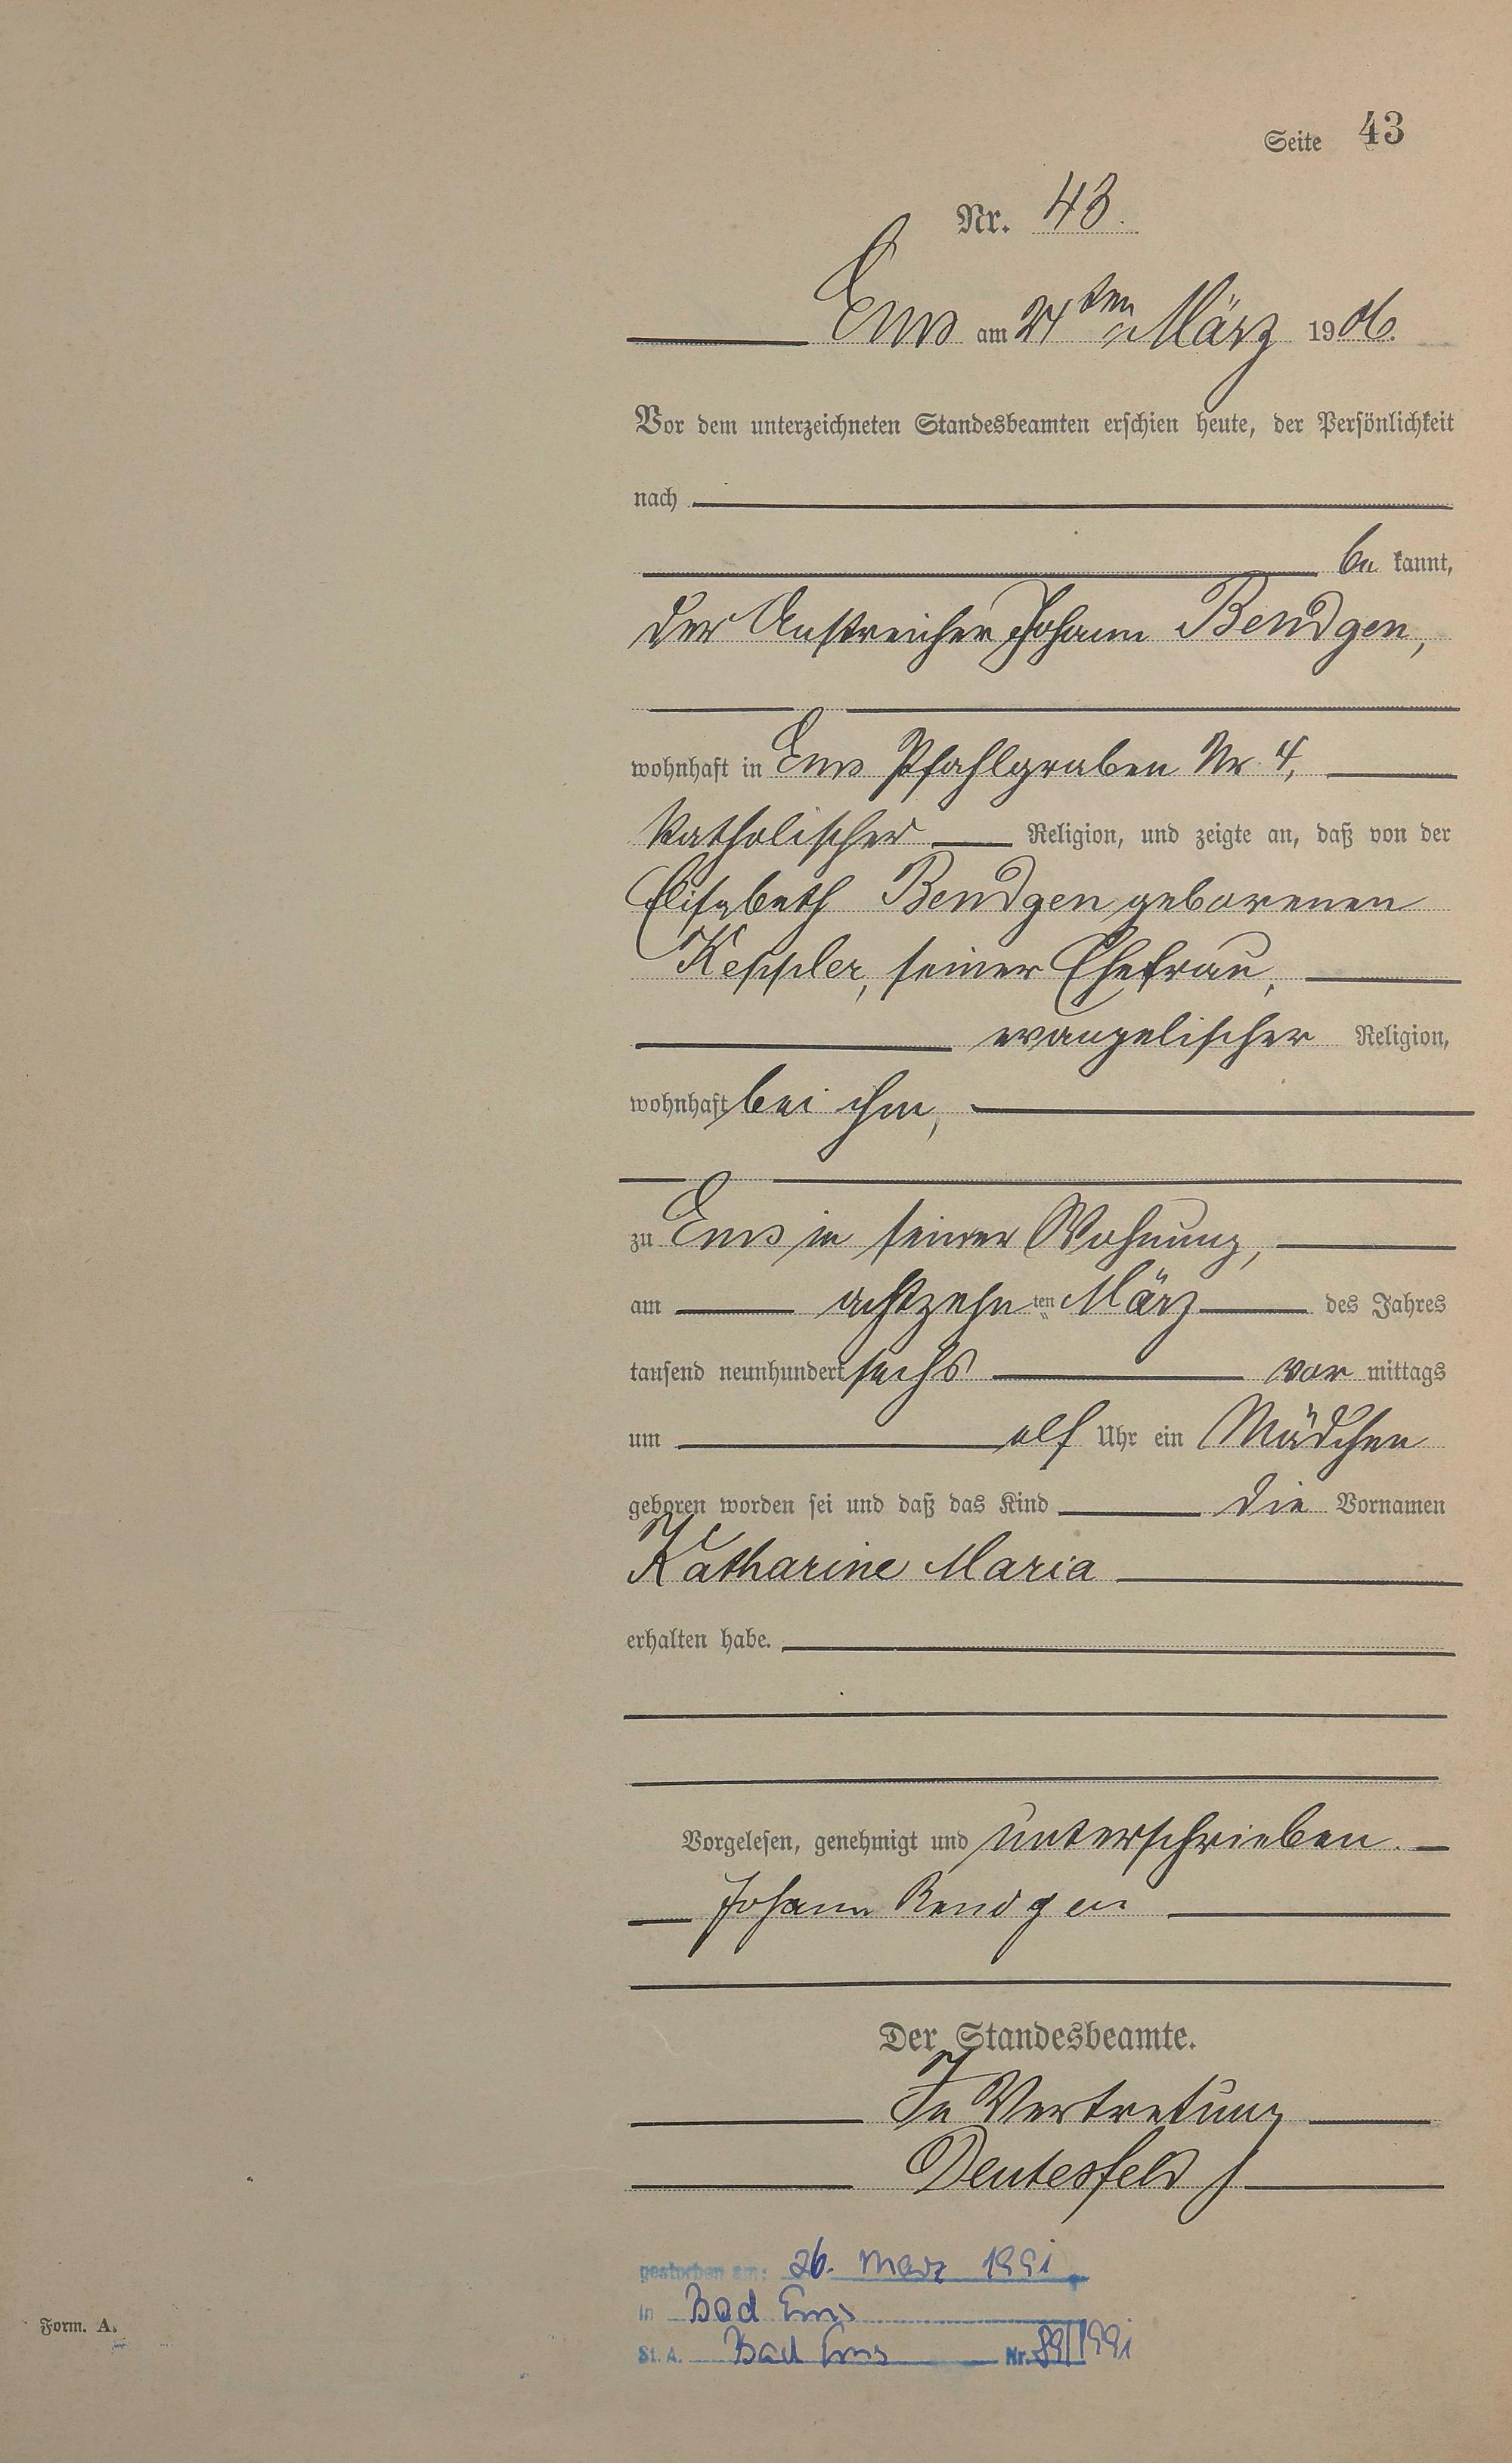 Seite 43
Nr. 43.
Ems am 24ten März 1906.
Vor dem unterzeichneten Standesbeamten erschien heute, der Persönlichkeit
nach
be kannt,
der Anstreicher Johann Bendgen,
wohnhaft in Ems Pfahlgraben Nr. 4,
katholischer Religion, und zeigte an, daß von der
Elisabeth Bendgen geborenen
Keppler, seiner Ehefrau,
evangelischer Religion,
wohnhaft bei ihm,
zu Ems in seiner Wohnung,
am achtzehn ten März des Jahres
tausend neunhundert sechs vor mittags
um elf Uhr ein Mädchen
geboren worden sei und daß das Kind die Vornamen
Katharine Maria
erhalten habe.
Vorgelesen, genehmigt und unterschrieben.
Johann Bendgen
Der Standesbeamte.
In Vertretung
Deutesfeld
gestorben am: 26. März 1991
in Bad Ems
St. A. Bad Ems Nr. 89/1991
Form. A.